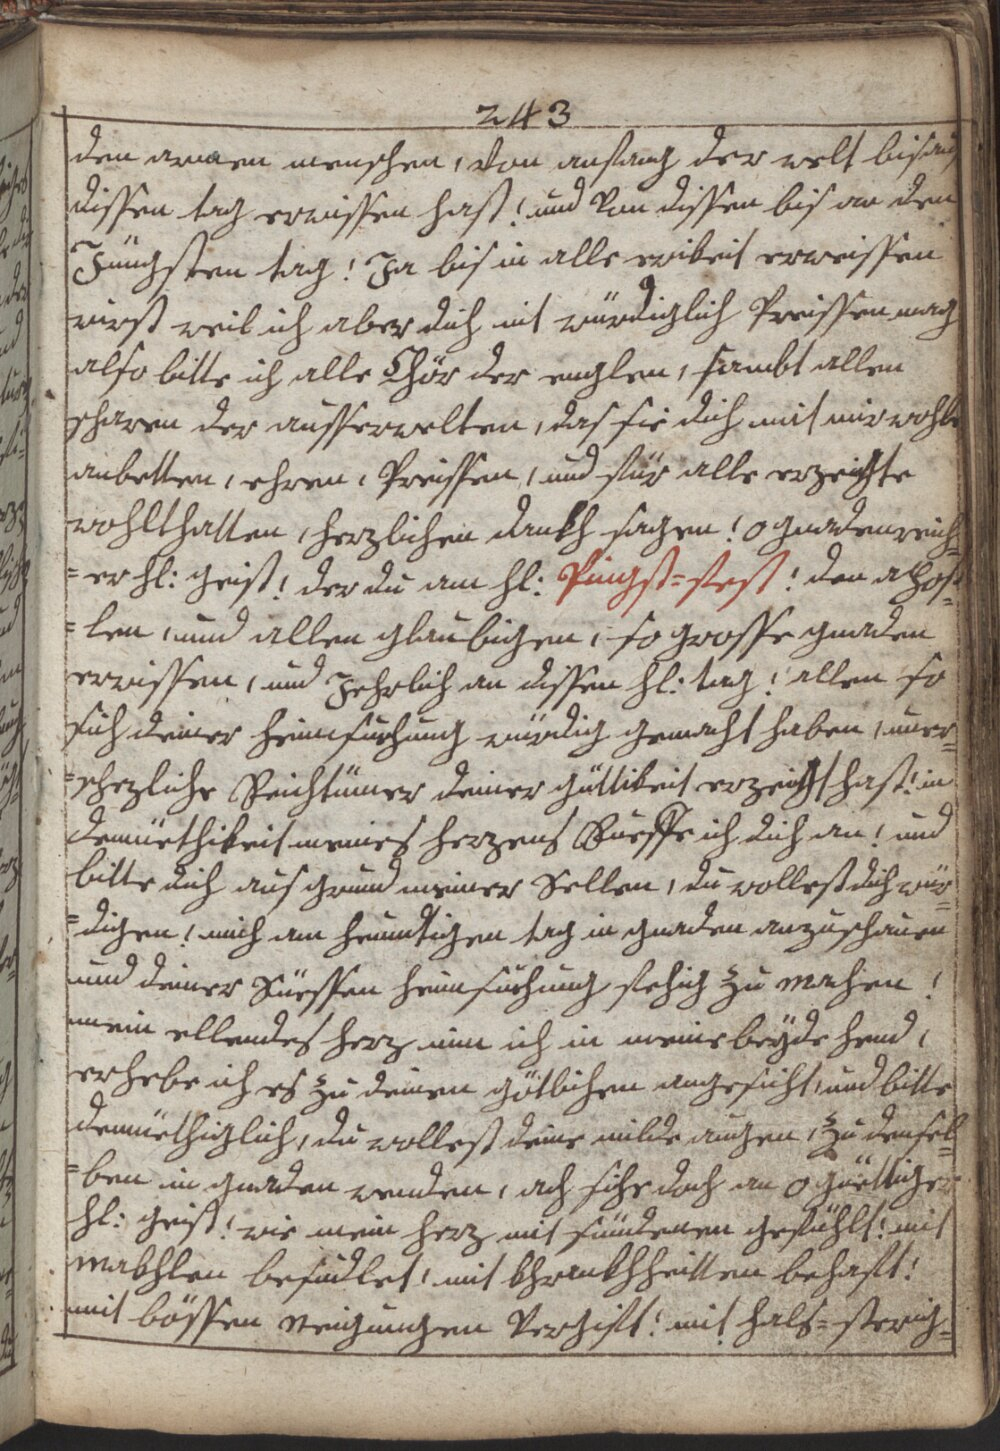 243
den armen menschen, von anfang der welt bis auf
dissen tag erwissen hast! und von dissen bis an den
Jüngsten tag! Ja bis in alle ewikeit erweissen
wirst weil ich aber dich nit würdiglich Preissen mag
also bitte ich alle Chör der englen, sambt allen
scharen der ausserwelten, das sie dich mit mir wohle
anbetten, ehren, Preissen, und für alle erzeigte
wohlthatten, herzlichen dankh sagen! o gnadenreich=
=er hl: geist! der du am hl: Pfingst=fest! den apos=
=len, und allen glaubigen, so grosse gnaden
erwissen, und Jehrlich an dissen hl: tag! allen so
sich deiner heimsuchung würdig gemacht haben, uner=
=schezliche Reichtümer deiner güttikeit erzeigt hast! in
demüethikeit meines herzens Büesse ich dich an! und
bitte dich aus grund meiner Sellen, du wollest dich wür=
=digen! mich am heundtigen tag in gnaden anzuschauen
und deiner Süessen heimsuchung fehig zu machen!
mein ellendes herz nim ich in meine beyde hend,
erhebe ich es zu deinen götlichen angesicht, und bitte
demüethiglich, du wollest deine milde augen, zu densel=
=ben in gnaden wenden, ach sihe doch an o güettiger
hl: geist! wie mein herz mit sündenen gefühlt! mit
makhlen besudlet! mit khrankhheitten behaft!
mit bössen neigungen vergift! mit hals=sterig=